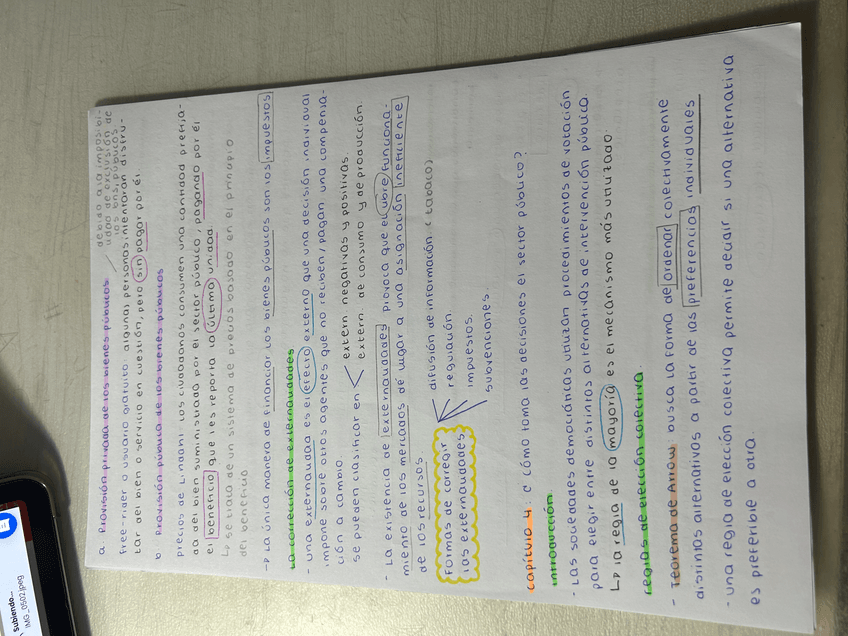 a. Provisión privada de los bienes públicos
debido a la imposibi-
lidad de exclusión de
los bns, públicos
free-rider o usuario gratuito: algunas personas intentarán disfru-
tar del bien o servicio en cuestión, pero sin pagar por él
b. Provisión pública de los bienes públicos
precios de Lindahl: los ciudadanos consumen una cantidad prefija-
da del bien suministrado por el sector público, pagando por él
el beneficio que les reporta la última unidad
↳ se trata de un sistema de precios basado en el principio
del beneficio
→ La única manera de financiar los bienes públicos son los impuestos
La corrección de externalidades
- una externalidad es el efecto externo que una decisión individual
impone sobre otros agentes que no reciben/pagan una compensa-
ción a cambio.
se pueden clasificar en < extern negativas y positivas
extern. de consumo y de producción.
- La existencia de externalidades provoca que el libre funciona-
miento de los mercados dé lugar a una asignación ineficiente
de los recursos
Formas de corregir
las externalidades
difusión de información. (tabaco)
regulación
impuestos.
subvenciones.
capítulo 4: ¿Cómo toma las decisiones el sector público?
introducción.
- Las sociedades democráticas utilizan procedimientos de votación
para elegir entre distintas alternativas de intervención pública
↳ la regla de la mayoría es el mecanismo más utilizado
reglas de elección colectiva.
- Teorema de Arrow: busca la forma de ordenar colectivamente
distintas alternativas a partir de las preferencias individuales
- una regla de elección colectiva permite decidir si una alternativa
es preferible a otra.
Subiendo...
IMG_0502.jpeg